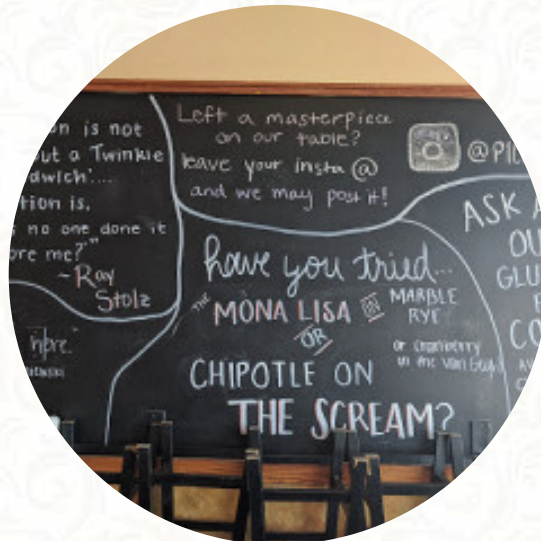 on is not
out a Twinkie
dwich'....
tion is,
no one done it
ore me?"
~Ray
Stolz
here."
Left a masterpiece
on our table?
leave your insta @
and we may post it!
@PIC
have you tried...
THE MONA LISA IN MARBLE
RYE
OR
or cranberry
in the Van Gogh
CHIPOTLE ON
THE SCREAM?
ASK A
OU
GLU
F
CO